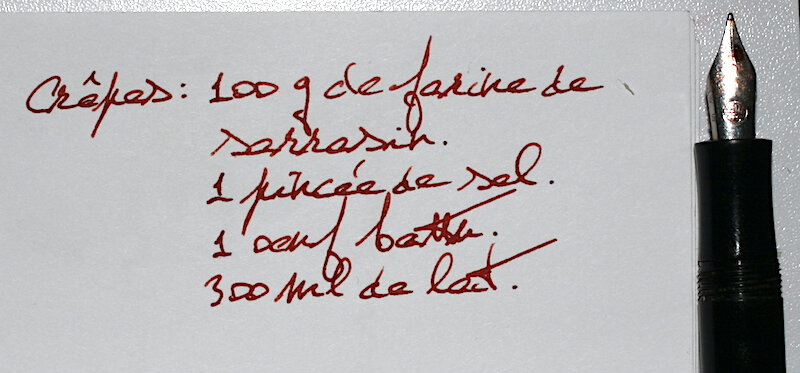 Crêpes: 100 g de farine de
sarrasin.
1 pincée de sel.
1 oeuf battu.
300 ml de lait.